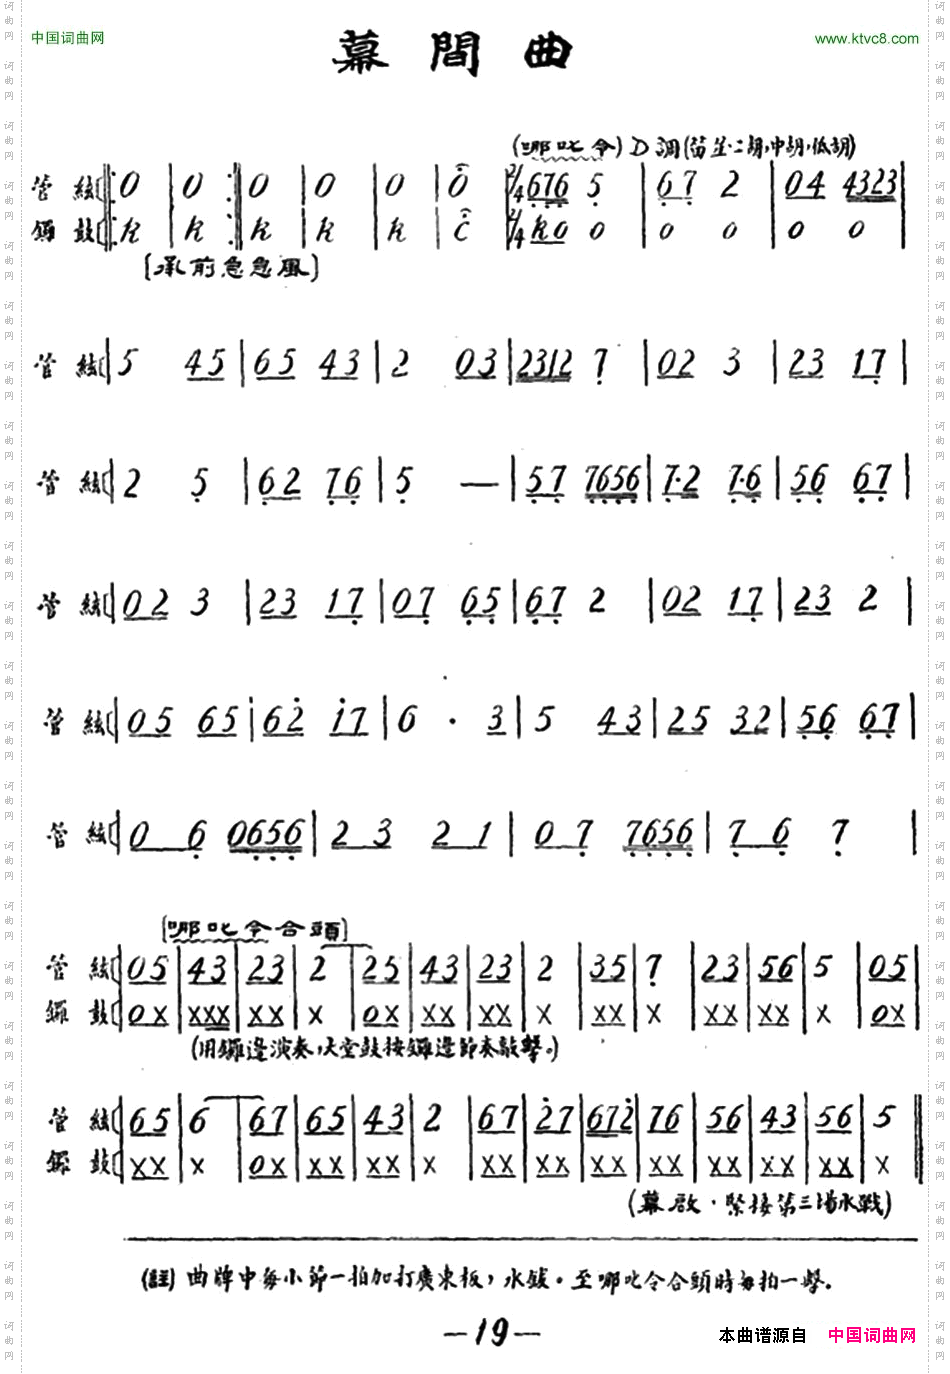 中国词曲网
www.ktvc8.com
幕間曲
(哪吒令) D調(笛笙·二胡,中胡,低胡)
管絃 0 | 0 | 0 | 0 | 0 | 0 | 2/4 676 5 | 67 2 | 04 4323 |
鑼鼓 k | k | k | k | k | c | 2/4 k0 0 | 0 0 | 0 0 |
〔承前急急風〕
管絃 5 45 | 65 43 | 2 03 | 2312 7 | 02 3 | 23 17 |
管絃 2 5 | 62 76 | 5 — | 57 7656 | 7·2 7·6 | 56 67 |
管絃 02 3 | 23 17 | 07 65 | 67 2 | 02 17 | 23 2 |
管絃 05 65 | 62 17 | 6 · 3 | 5 43 | 25 32 | 56 67 |
管絃 0 6 0656 | 2 3 2 1 | 0 7 7656 | 7 6 7 |
〔哪吒令合頭〕
管絃 05 | 43 | 23 | 2 | 25 | 43 | 23 | 2 | 35 | 7 | 23 | 56 | 5 | 05 |
鑼鼓 0X | XXX | XX | X | 0X | XX | XX | X | XX | X | XX | XX | X | 0X |
(用鑼邊演奏,大堂鼓按鑼邊節奏敲擊。)
管絃 65 | 6 | 67 | 65 | 43 | 2 | 67 | 27 | 672 | 76 | 56 | 43 | 56 | 5 ||
鑼鼓 XX | X | 0X | XX | XX | X | XX | XX | XX | XX | XX | XX | XX | X ||
(幕啟·緊接第三場水戰)
(註) 曲牌中每小節一拍加打廣東板,水鈸。至哪吒令合頭時每拍一擊.
—19—
本曲谱源自 中国词曲网